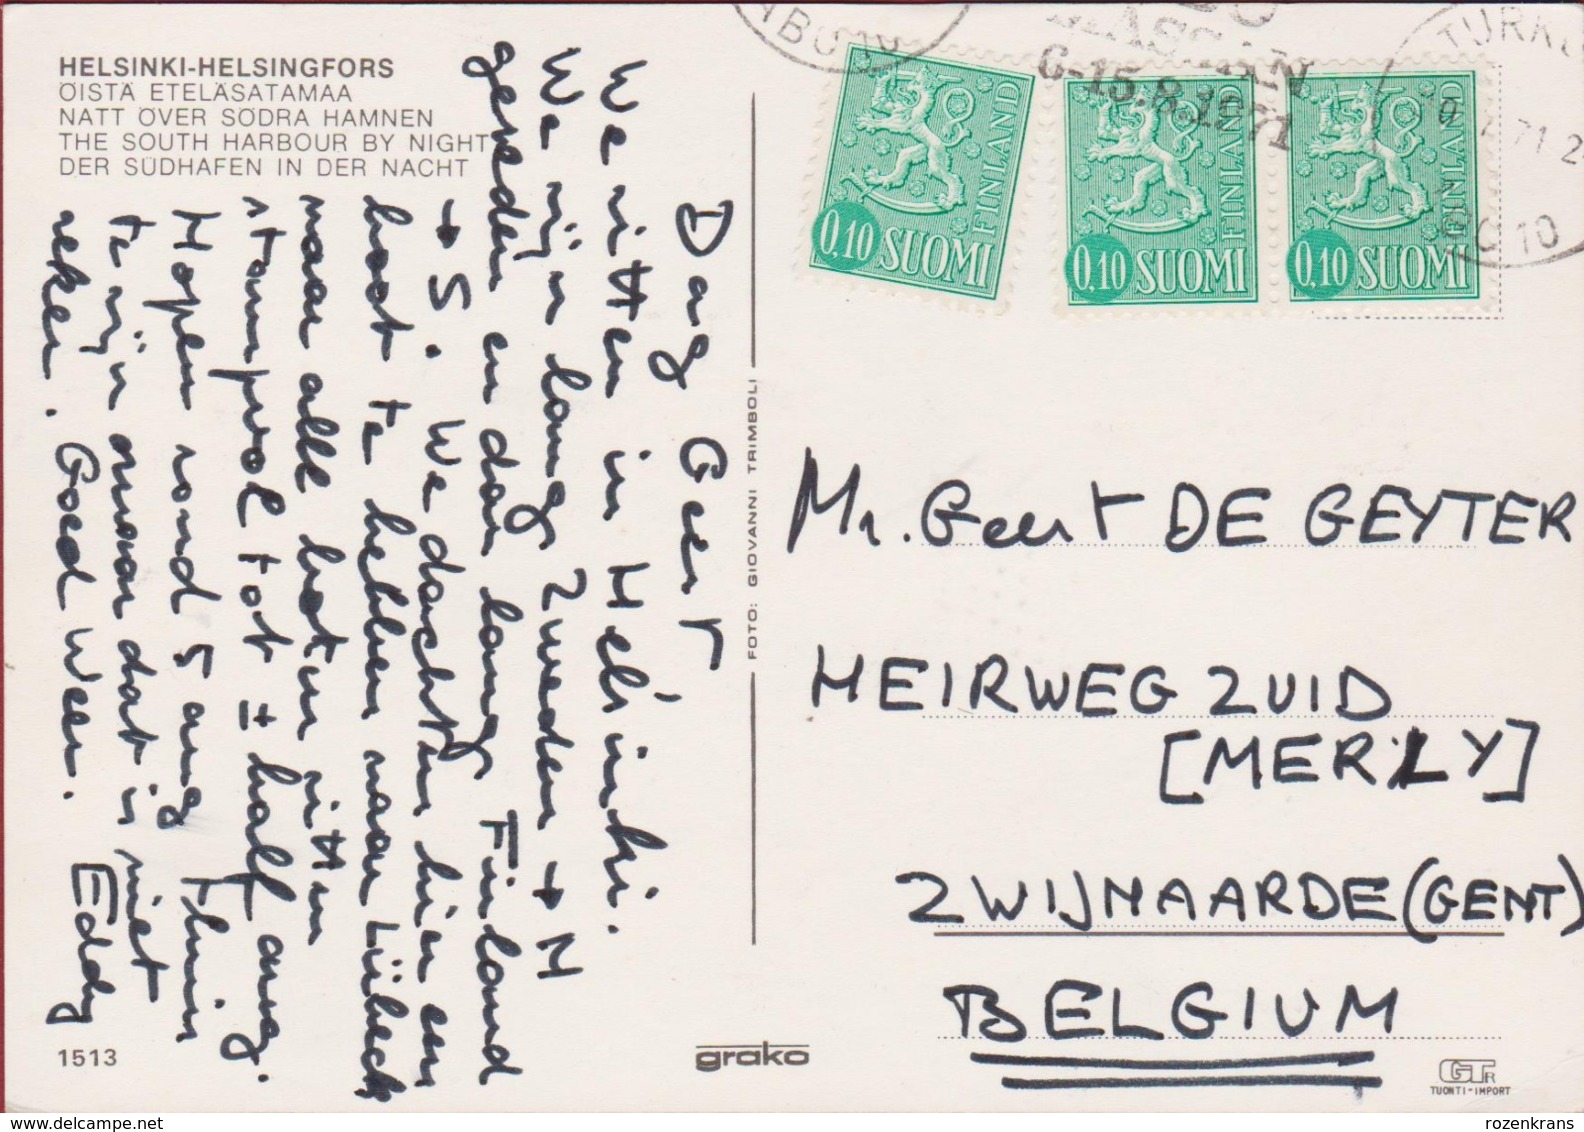 HELSINKI-HELSINGFORS
ÖISTÄ ETELÄSATAMAA
NATT ÖVER SÖDRA HAMNEN
THE SOUTH HARBOUR BY NIGHT
DER SÜDHAFEN IN DER NACHT
Dag Geert
We zitten in Helsinki.
We zijn langs Zweden → N
gereden en dan langs Finland
→ S. We dachten hier een
boot te hebben naar Lübeck
maar alle boten zitten
stampvol tot ± half aug.
Hopen rond 5 aug thuis
te zijn maar dat is niet
zeker. Goed Weer. Eddy
1513
FOTO: GIOVANNI TRIMBOLI
grako
ABO 10
MÄSSAN
6-15.8.1971
TURKU
71 2
ABO 10
FINLAND
0,10 SUOMI
FINLAND
0,10 SUOMI
FINLAND
0,10 SUOMI
Mr. Geert DE GEYTER
HEIRWEG ZUID
[MERLY]
ZWIJNAARDE (GENT)
BELGIUM
GTR
TUONTI-IMPORT
rozenkrans